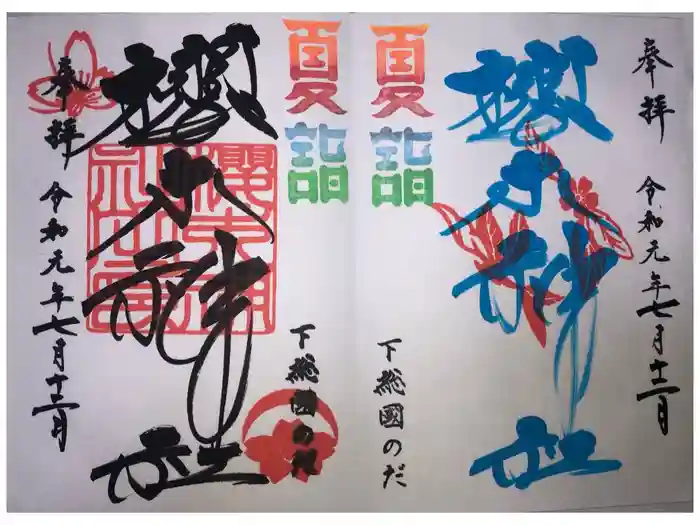 奉拝 令和元年七月十二日
櫻木神社
下総國のだ
夏詣
夏詣
下総國のだ
櫻木神社
奉拝 令和元年七月十二日